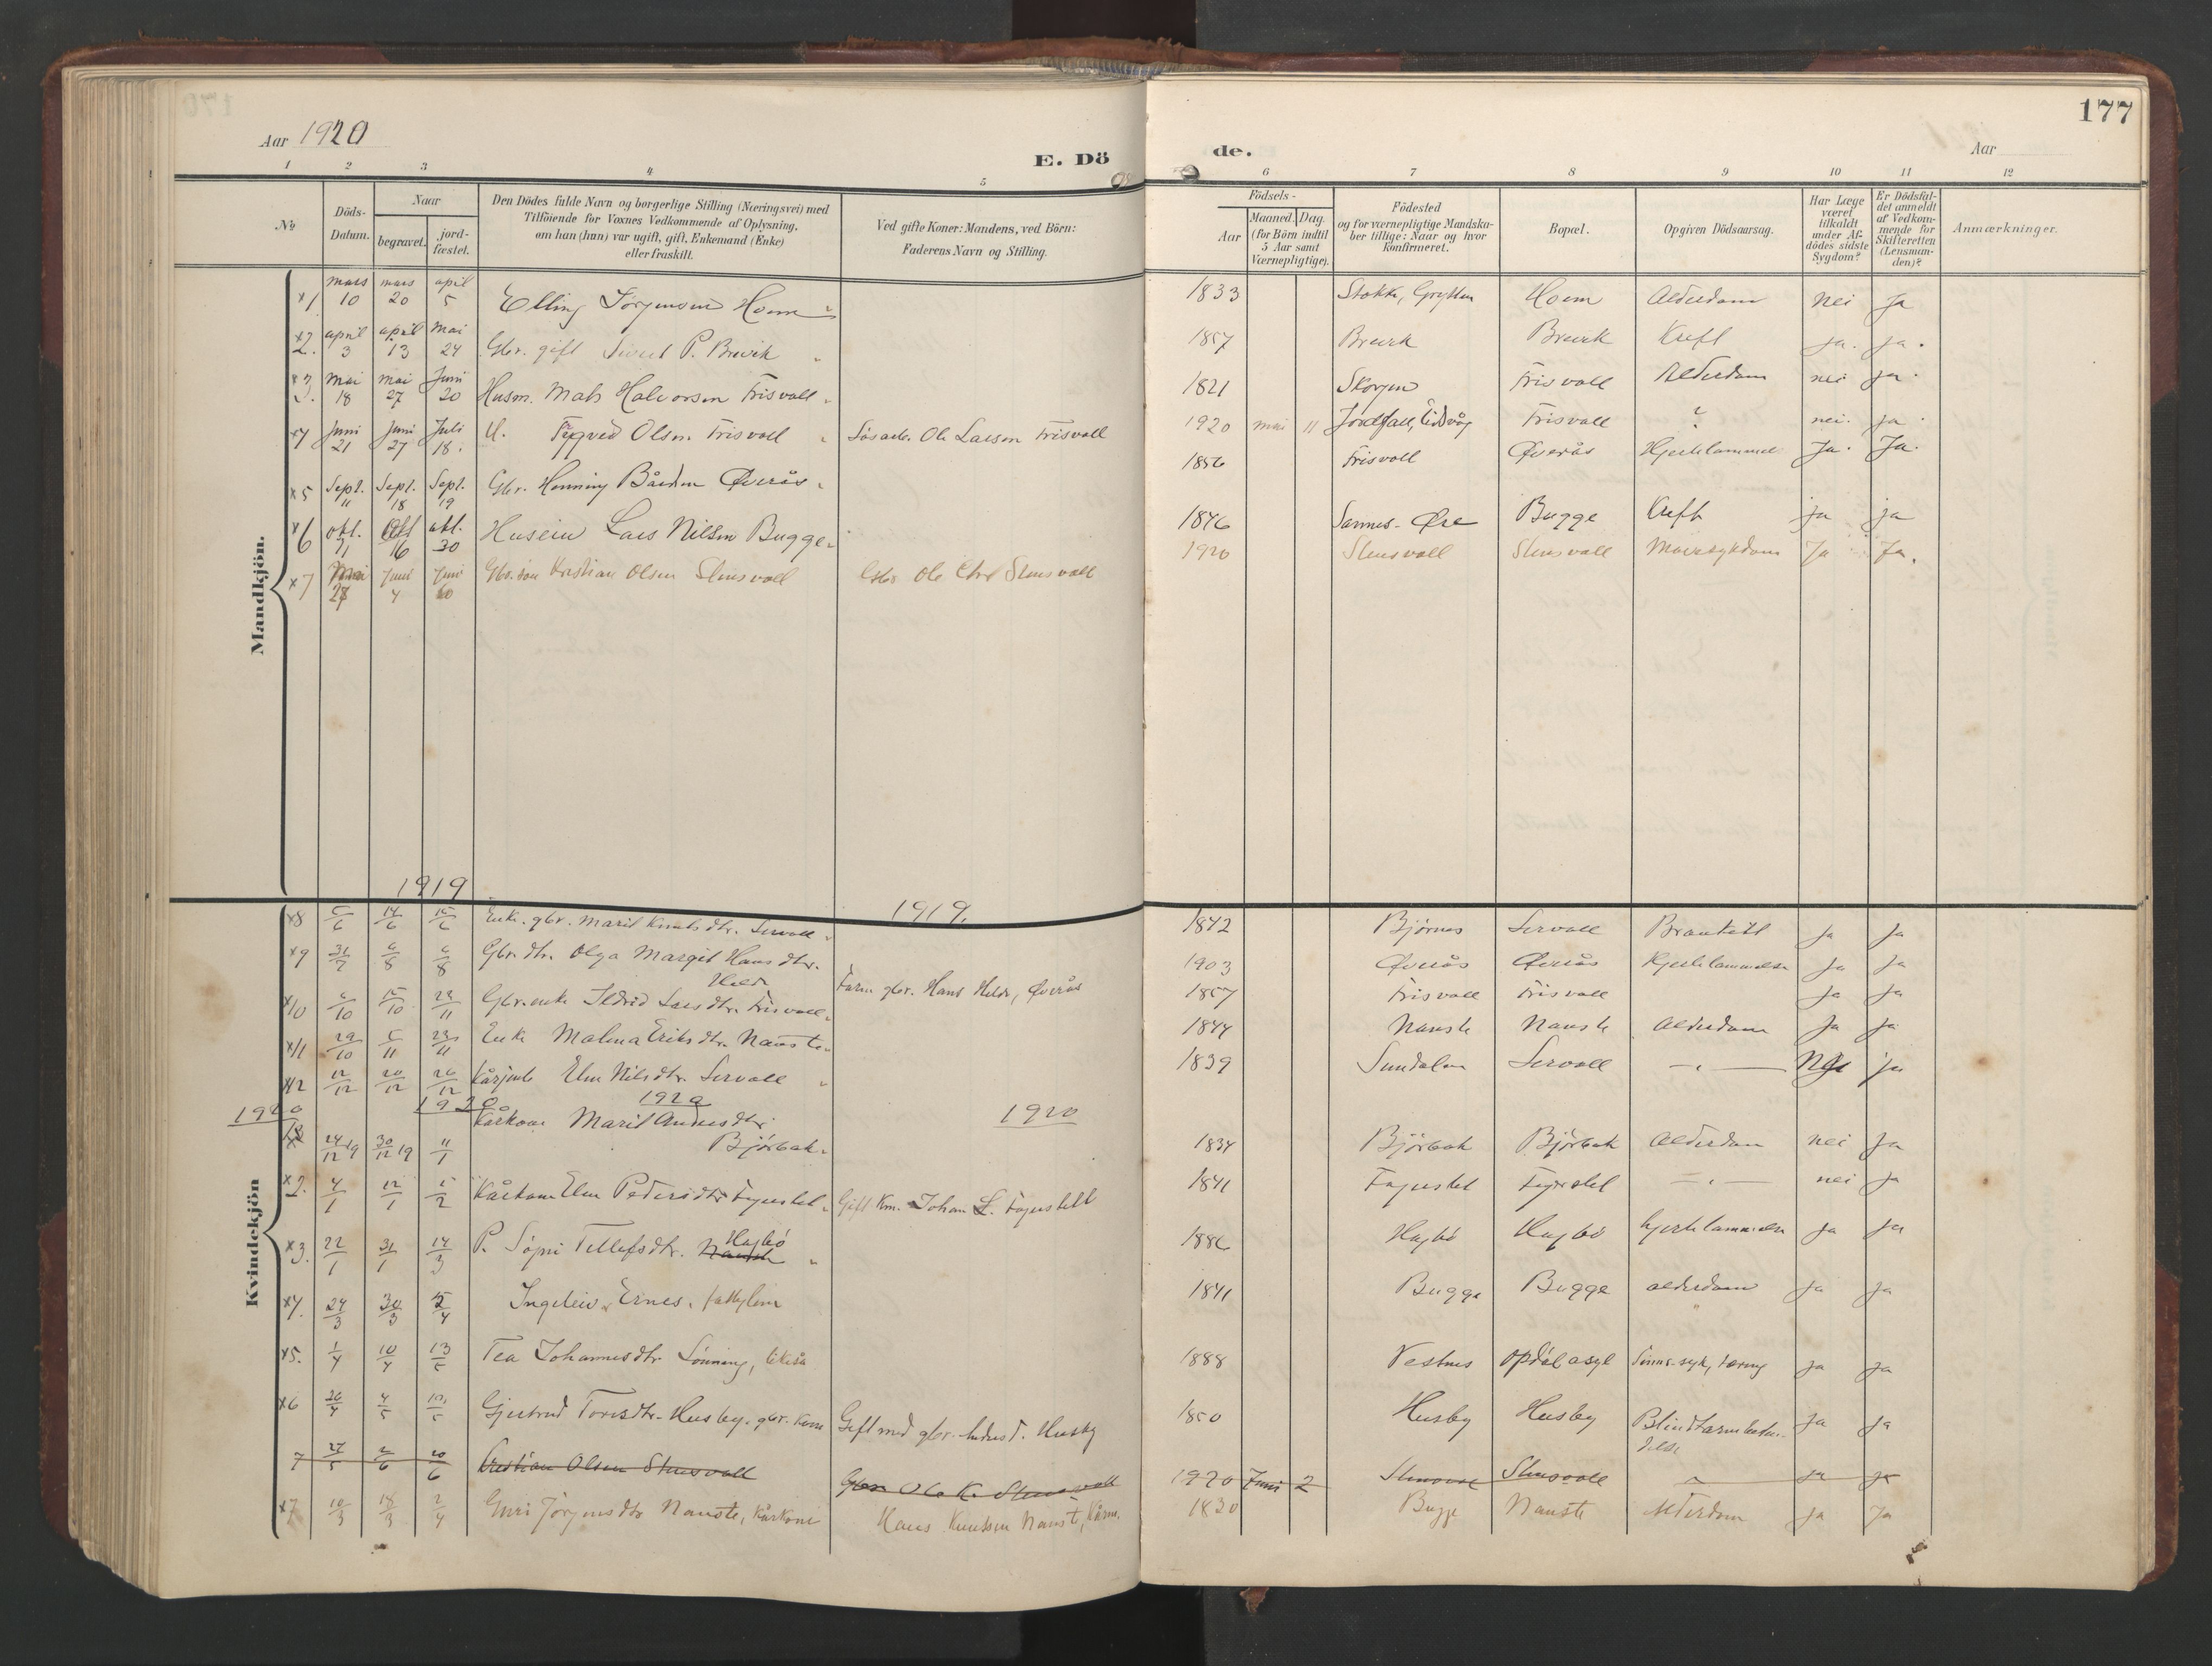 177
Aar 1920
E. Dö
de.
Aar
1 2 3 4 5 6 7 8 9 10 11 12
No
Döds-Datum.
Naar
begravet.
jord-fæstet.
Den Dödes fulde Navn og borgerlige Stilling (Næringsvei) med
Tilföiende for Voxnes Vedkommende af Oplysning,
om han (hun) var ugift, gift, Enkemand (Enke)
eller fraskilt.
Ved gifte Koner: Mandens, ved Börn:
Faderens Navn og Stilling.
Födsels-
Aar
Maaned. Dag.
(for Börn indtil
5 Aar samt
Værnepligtige).
Födested
og for værnepligtige Mandska-
ber tillige: Naar og hvor
konfirmeret.
Bopæl.
Opgiven Dödsaarsag.
Har Læge
været
tilkaldt
under Af-
dödes sidste
Sygdom?
Er Dödsfal-
det anmeldt
af Vedkom-
mende for
Skifteretten
(Lensman-
den)?
Anmærkninger.
Mandkjön.
x1 mars 10 mars 20 april 5 Elling Jørgensen Hoem 1833 Stokke, Grytten Hoem Alderdom Nei Ja
x2. april 3 april 13 mai 24 Gbr. gift Sivert P. Brevik 1857 Brevik Brevik Kreft ja. ja.
x3. mai 18 mai 27 Juni 20 Husm. Mats Halvorsen Frisvoll 1821 Skorgen Frisvoll Alderdom nei ja.
x4 Juni 21 Juni 27 Juli 18. U. Olsen Frisvoll Ole Larsen Frisvoll 1920 mai 11 Eidsvåg Frisvoll ? nei. ja.
x5 Sept. 11 Sept. 18 Sept. 19 Gbr. Henning Bårdsen Øverås 1856 Frisvoll Øverås Hjertelammelse Ja. Ja.
x6 okt. okt 16 okt. 30 Lars Nilsen Bugge 1846 Sannes-Øre Bugge Kreft ja ja
x7 Mai Juni 4 Juni Gbr. søn Kristian Olsen Stensvoll Gbr Ole Chr. Stensvoll 1920 Stensvoll Stensvoll Mavesykdom Ja Ja.
1919 1919.
Kvindekjön
x8 5/6 14/6 15/6 Enke. gbr. Marit Knutsdtr. Servoll 1842 Bjørnes Servoll Ja Ja
x9 31/7 6/8 6/8 Gbr. dtr. Olga Margit Hansdtr. Helde Farm gbr. Hans Helde, Øverås 1903 Øverås Øverås Hjertelammelse Ja Ja
x10 6/10 15/10 23/11 Gbr. enke Ildrid Larsdtr. Frisvoll 1857 Frisvoll Frisvoll Ja Ja
x11 29/10 5/11 23/11 Enke Malena Eriksdtr. Nauste 1844 Nauste Nauste Alderdom Ja Ja
x12 12/12 20/12 26/12 Kårjente Elen Nilsdtr. Servoll 1839 Sundalen Servoll — " — Nei ja
1920 1920 1920 1920
x 24/12 19 30/12 19 11/1 Kårkone Marit Andersdtr. Bjørbak 1834 Bjørbak Bjørbak Alderdom nei Ja
x2. 4/1 12/1 15/2 Kårkone Elen Pedersdtr Fagerslet Gift Km. Johan L. Fagerslett 1841 Fagerslet Fagerslet — " — nei Ja
x3. 22/1 31/1 14/3 P. Søpni Tellefsdtr. Nauste Hagbø 1886 Hagbø Hagbø hjertelammelse Ja Ja
x4. 24/3 30/3 5/4 Ingeleiv Ernes, fattiglem 1841 Bugge Bugge alderdom Ja Ja
x5. 1/4 10/4 13/5 Tea Johannesdtr. Lönning, likeså 1888 Vestnes Opdøl asyl Sinns-syk, tæring Ja Ja
x6 26/4 4/5 13/5 Gjertrud Toresdtr. Husby. gbr. kone Gift med gbr. Anders T. Husby 1850 Husby Husby Blindtarmbetændelse Ja Ja
7 27/5 2/6 20/6 Kristian Olsen Stensvoll Gbr. Ole K. Stensvoll 1920 Juni 2 Stensvoll Stensvoll Ja Ja
x7 10/3 18/3 2/4 Guri Jørgensdtr Nauste, Kårkone Hans Knutsen Nauste, Kårm. 1830 Bugge Nauste Alderdom Ja Ja